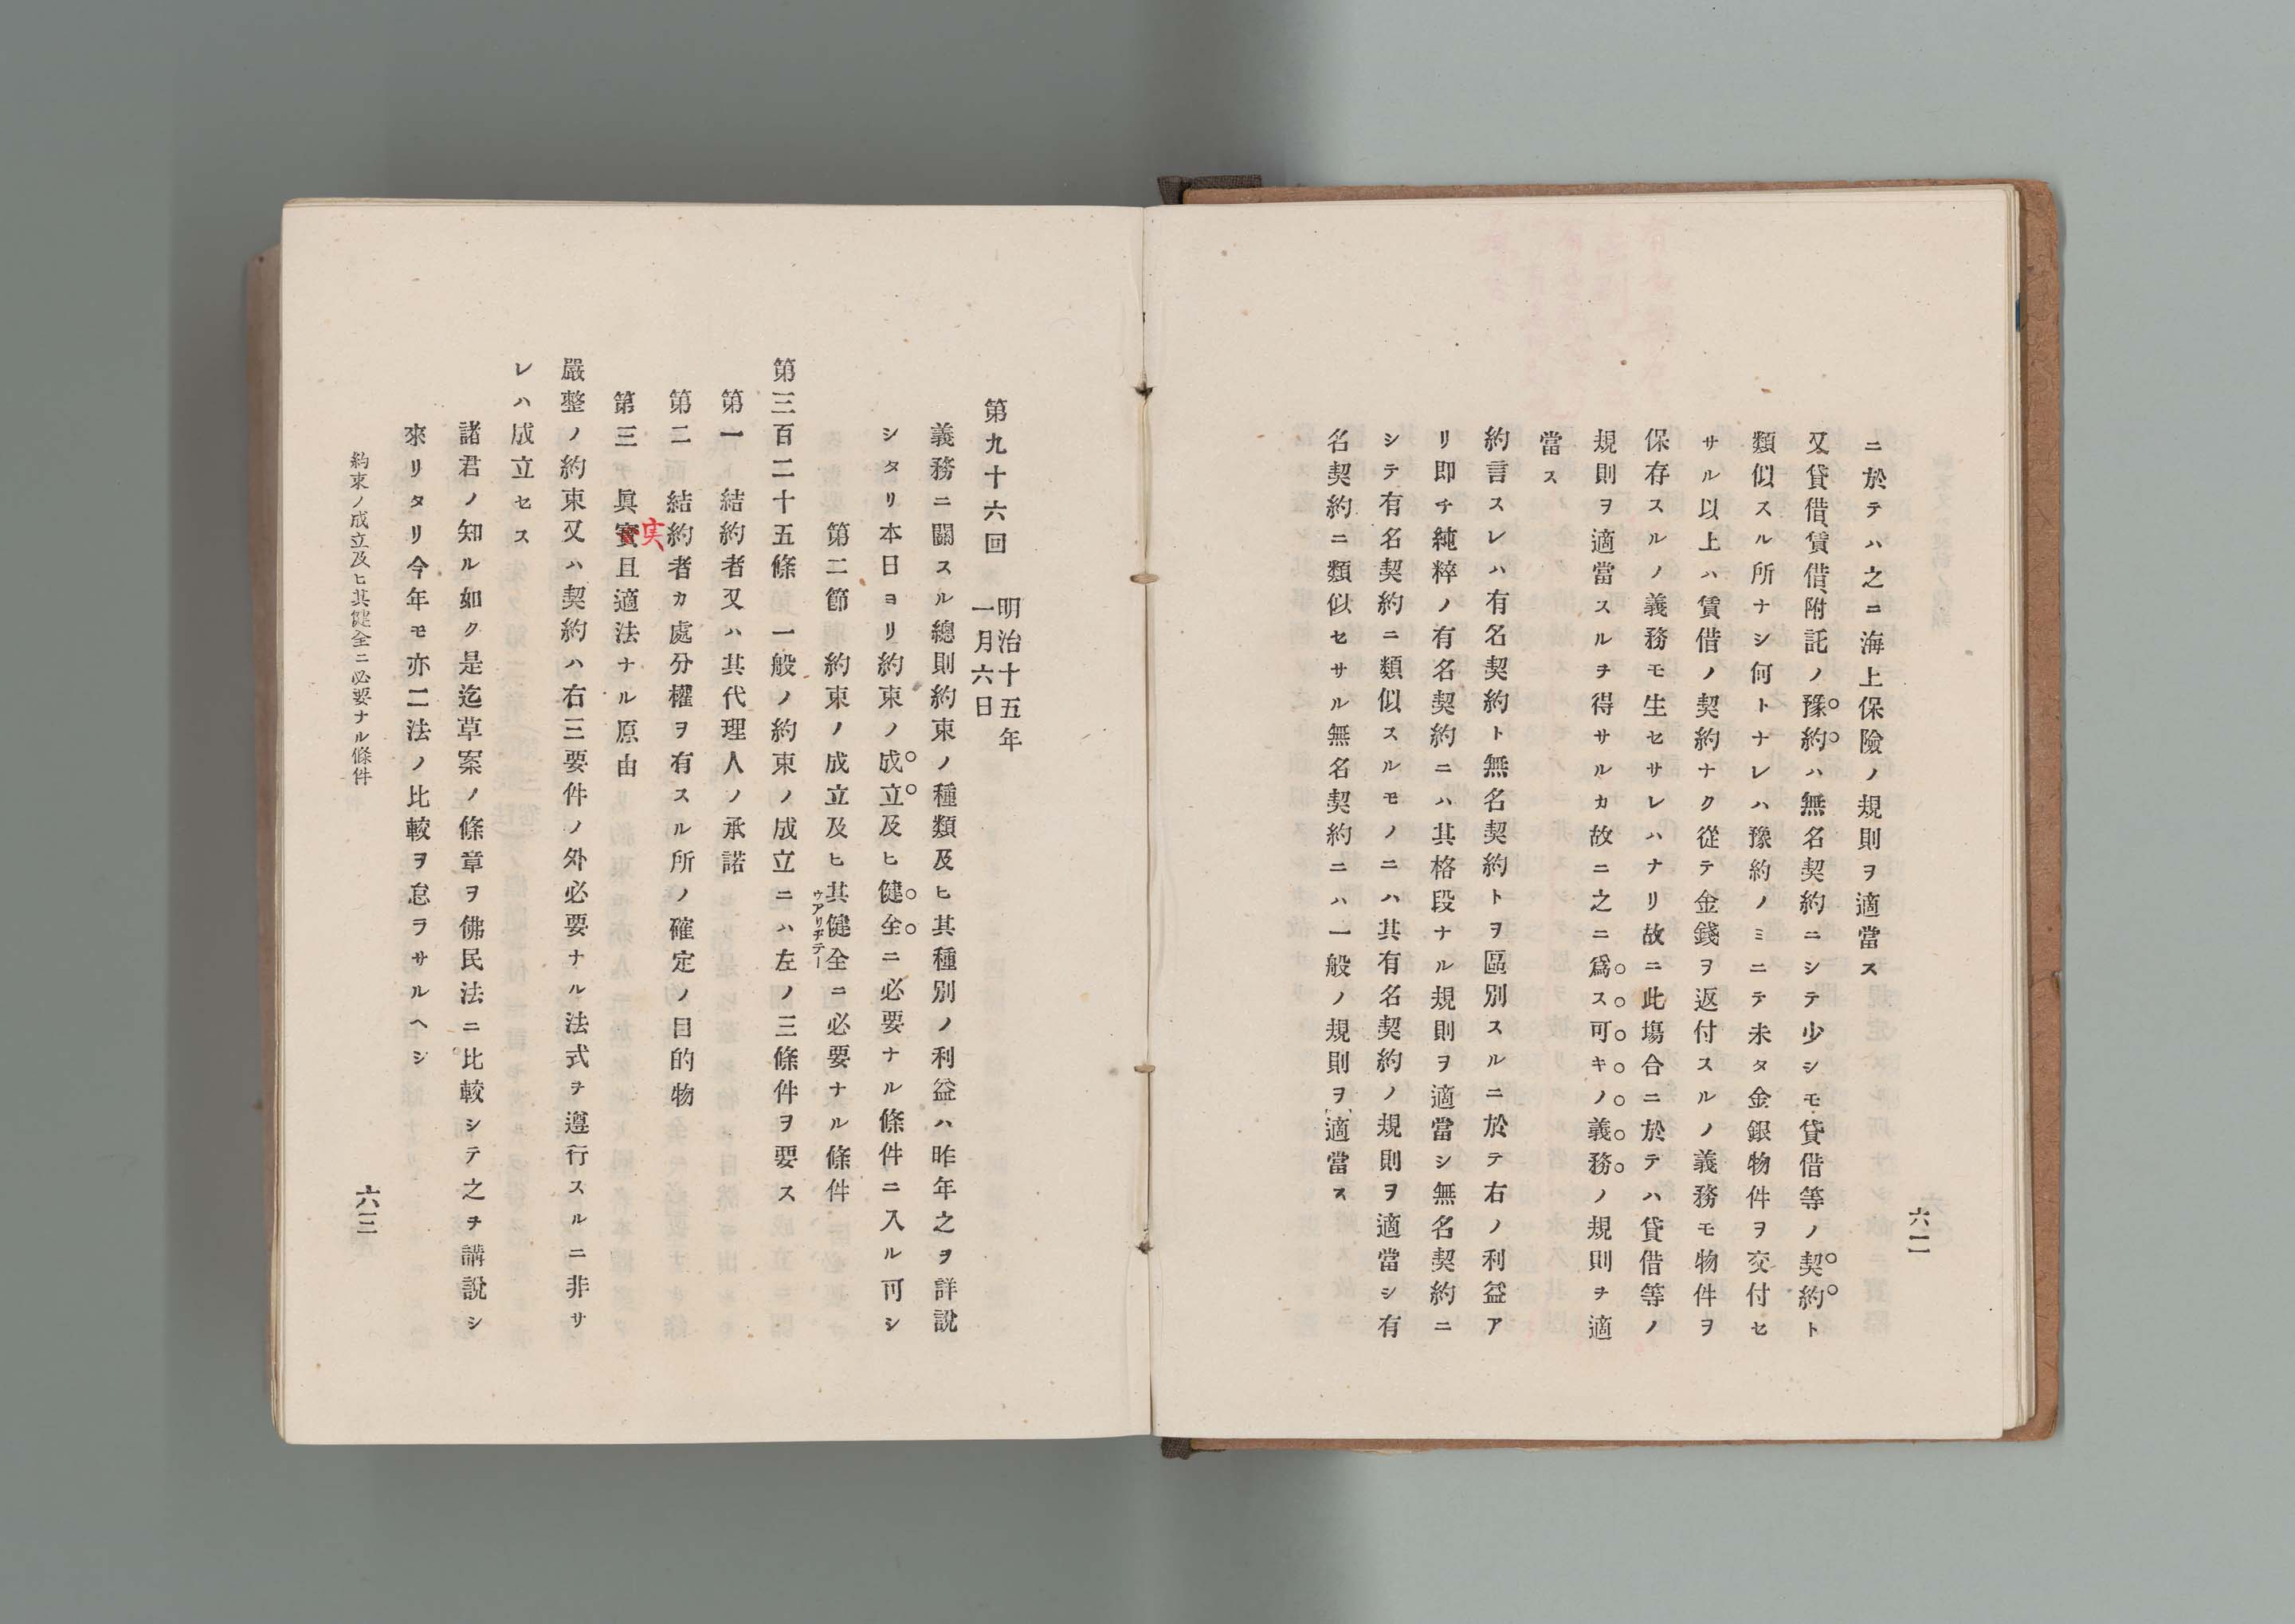 ニ於テハ之ニ海上保險ノ規則ヲ適當ス
又貸借、賃借、附託ノ豫約ハ無名契約ニシテ少シモ貸借等ノ契約ト
類似スル所ナシ何トナレハ豫約ノミニテ未タ金銀物件ヲ交付セ
サル以上ハ賃借ノ契約ナク從テ金錢ヲ返付スルノ義務モ物件ヲ
保存スルノ義務モ生セサレハナリ故ニ此塲合ニ於テハ貸借等ノ
規則ヲ適當スルヲ得サルカ故ニ之ニ爲ス可キノ義務ノ規則ヲ適
當ス
約言スレハ有名契約ト無名契約トヲ區別スルニ於テ右ノ利益ア
リ即チ純粹ノ有名契約ニハ其格段ナル規則ヲ適當シ無名契約ニ
シテ有名契約ニ類似スルモノニハ其有名契約ノ規則ヲ適當シ有
名契約ニ類似セサル無名契約ニハ一般ノ規則ヲ適當ス
六二
第九十六回 明治十五年
一月六日
義務ニ關スル總則約束ノ種類及ヒ其種別ノ利益ハ昨年之ヲ詳說
シタリ本日ヨリ約束ノ成立及ヒ健全ニ必要ナル條件ニ入ル可シ
第二節 約束ノ成立及ヒ其健全ニ必要ナル條件
ヴアリヂテー
第三百二十五條 一般ノ約束ノ成立ニハ左ノ三條件ヲ要ス
第一 結約者又ハ其代理人ノ承諾
第二 結約者カ處分權ヲ有スル所ノ確定ノ目的物
実
第三 眞實且適法ナル原由
嚴整ノ約束又ハ契約ハ右三要件ノ外必要ナル法式ヲ遵行スルニ非サ
レハ成立セス
諸君ノ知ル如ク是迄草案ノ條章ヲ佛民法ニ比較シテ之ヲ講說シ
來リタリ今年モ亦二法ノ比較ヲ怠ラサルヘシ
約束ノ成立及ヒ其健全ニ必要ナル條件
六三